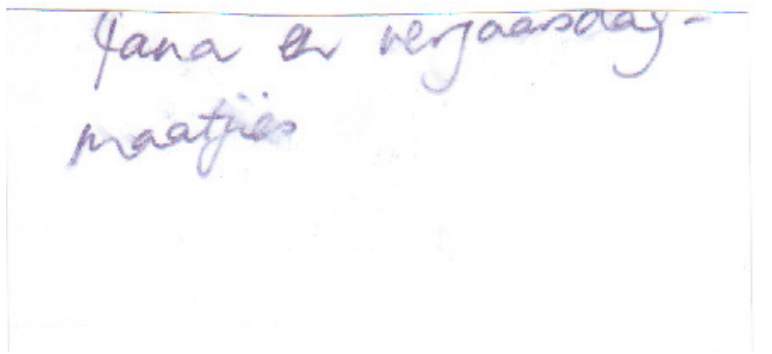 Jana en verjaarsdag-
maatjies